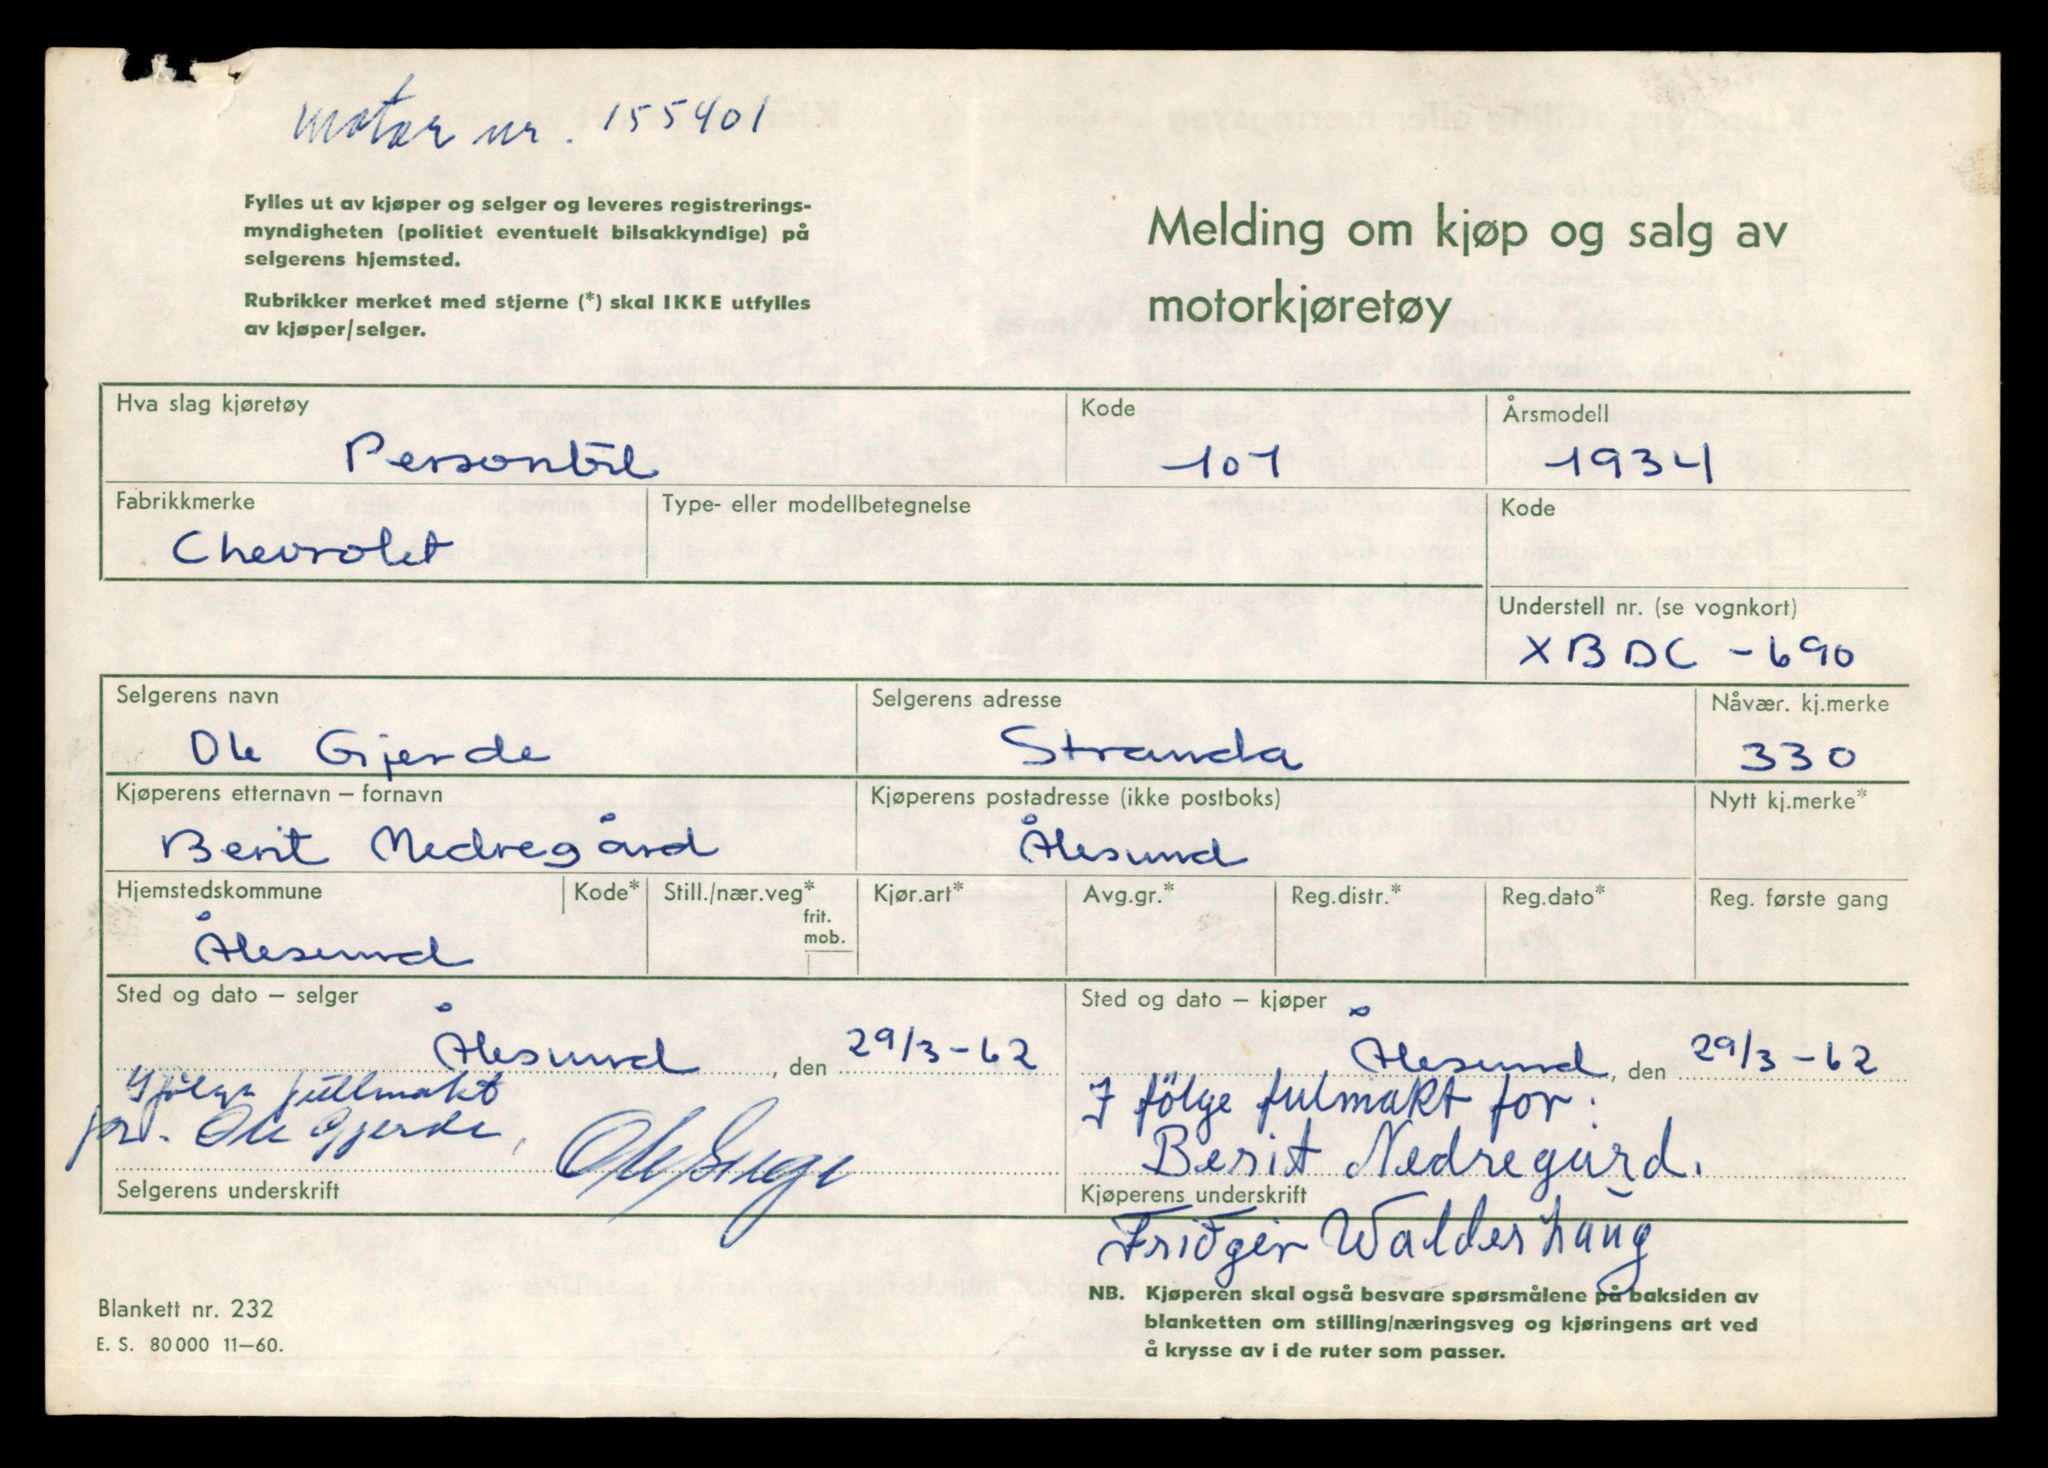 motor nr. 155401
Fylles ut av kjøper og selger og leveres registrerings-
myndigheten (politiet eventuelt bilsakkyndige) på
selgerens hjemsted.
Rubrikker merket med stjerne (*) skal IKKE utfylles
av kjøper/selger.
Melding om kjøp og salg av
motorkjøretøy
Hva slag kjøretøy
Personbil
Kode
101
Årsmodell
1934
Fabrikkmerke
Chevrolet
Type- eller modellbetegnelse
Kode
Understell nr. (se vognkort)
XBDC - 690
Selgerens navn
Ole Gjerde
Selgerens adresse
Stranda
Nåvær. kj.merke
330
Kjøperens etternavn – fornavn
Berit Nedregård
Kjøperens postadresse (ikke postboks)
Ålesund
Nytt kj.merke*
Hjemstedskommune
Ålesund
Kode*
Still./nær.veg*
frit.
mob.
Kjør.art*
Avg.gr.*
Reg.distr.*
Reg.dato*
Reg. første gang
Sted og dato – selger
Ålesund, den 29/3-62
Ifølge fullmakt
for. Ole Gjerde,
Selgerens underskrift
Sted og dato – kjøper
Ålesund, den 29/3-62
I fölge fulmakt for:
Berit Nedregård.
Kjøperens underskrift
Fridgeir Walderhaug
NB. Kjøperen skal også besvare spørsmålene på baksiden av
blanketten om stilling/næringsveg og kjøringens art ved
å krysse av i de ruter som passer.
Blankett nr. 232
E. S. 80000 11–60.